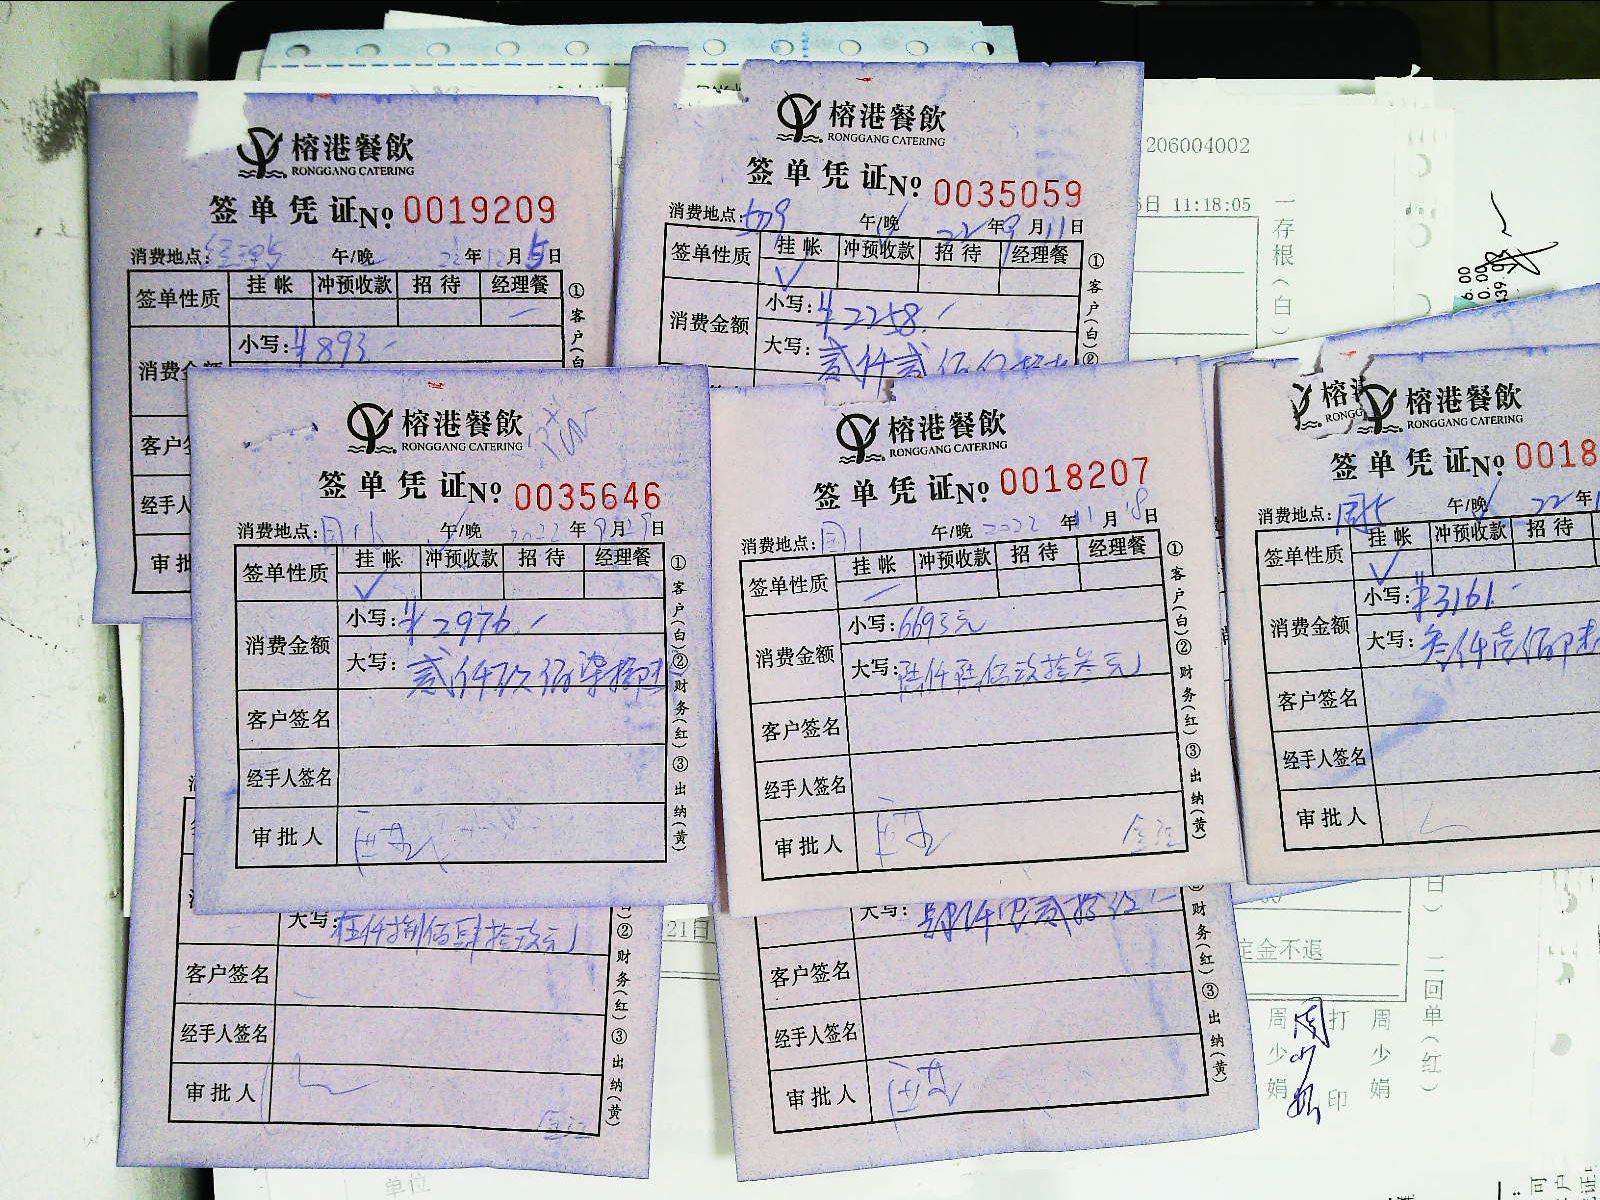 榕港餐飲
RONGGANG CATERING
签单凭证No 0019209
消费地点: 午/晚 年12月5日
签单性质 挂帐 冲预收款 招待 经理餐
小写:¥893.-
消费金额
客户
经手人
审批
①客户(白
榕港餐飲
RONGGANG CATERING
签单凭证No 0035059
消费地点: 午/晚 22年9月11日
签单性质 挂帐 冲预收款 招待 经理餐
消费金额 小写:¥2258.-
大写:贰仟贰佰伍拾
①客户(白)②
206004002
日 11:18:05
一存根(白)
6.00
0.00
榕港餐飲
RONGGANG CATERING
签单凭证No 0035646
消费地点: 午/晚 2022年9月29日
签单性质 挂帐 冲预收款 招待 经理餐
消费金额 小写:¥2976.-
大写:贰仟玖佰柒拾陆
客户签名
经手人签名
审批人
①客户(白)②财务(红)③出纳(黄)
榕港餐飲
RONGGANG CATERING
签单凭证No 0018207
消费地点: 午/晚 2022年11月18日
签单性质 挂帐 冲预收款 招待 经理餐
消费金额 小写:6693元
大写:陆仟陆佰玖拾叁元
客户签名
经手人签名
审批人
①客户(白)②财务(红)③出纳(黄)
榕港
RONGG
榕港餐飲
RONGGANG CATERING
签单凭证No 0018
消费地点: 午/晚 22年
签单性质 挂帐 冲预收款 招待
消费金额 小写:¥3161.-
大写:叁仟壹佰陆
客户签名
经手人签名
审批人
大写:伍仟捌佰肆拾玖元
客户签名
经手人签名
审批人
②财务(红)③出纳(黄)
大写:
客户签名
经手人签名
审批人
财务(红)③出纳(黄)
21日
定金不退
二回单(红)
周少娟
打印
周少娟
单位